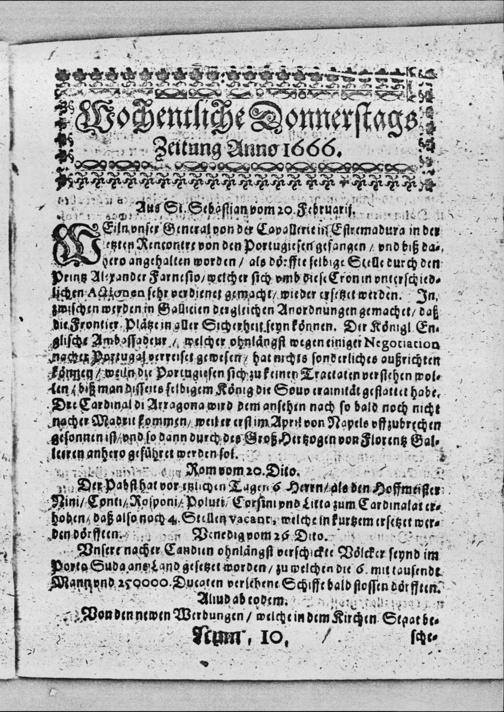 Wochentliche Donnerstags
Zeitung Anno 1666.
Aus St. Sebastian vom 20. Februarij.
WEiln vnser General von der Cavallerie in Estremadura in der
letzten Rencontre von den Portugiesen gefangen / vnd biß da-
hero angehalten worden / als dörffte selbige Stelle durch den
Printz Alexander Farnesio / welcher sich vmb diese Cron in vnterschied-
lichen Actionen sehr verdienet gemacht / wieder ersetzet werden. In-
zwischen werden in Gallicien dergleichen Anordnungen gemachet / daß
die Frontier-Plätze in aller Sicherheit seyn können. Der Königl. En-
glische Ambassadeur / welcher ohnlängst wegen einiger Negociation
nacher Portugal verreiset gewesen / hat nichts sonderliches außrichten
können / weiln die Portugiesen sich zu keinen Tractaten verstehen wol-
len / biß man disseits selbigem König die Souverainität gestattet habe.
Der Cardinal di Arragona wird dem ansehen nach so bald noch nicht
nacher Madrit kommen / weiler erst im April von Napels vffzubrechen
gesonnen ist / vnd so dann durch des Groß-Hertzogen von Florentz Gal-
leeren anhero geführet werden sol.
Rom vom 20. Dito.
Der Pabst hat vor etzlichen Tagen 6 Herrn / als den Hoffmeister
Nini / Conti / Rasponi / Poluti / Corsini vnd Litta zum Cardinalat er-
hoben / daß also noch 4. Stellen vacant, welche in kurtzem ersetzet wer-
den dörfften. Venedig vom 26. Dito.
Vnsere nacher Candien ohnlängst verschickte Völcker seynd im
Porto Suda an Land gesetzet worden / zu welchen die 6. mit tausend
Mann vnd 250000. Ducaten versehene Schiffe bald stossen dörfften.
Aliud ab eodem.
Von den newen Werbungen / welche in dem Kirchen-Staat be-
Num. 10. sche-